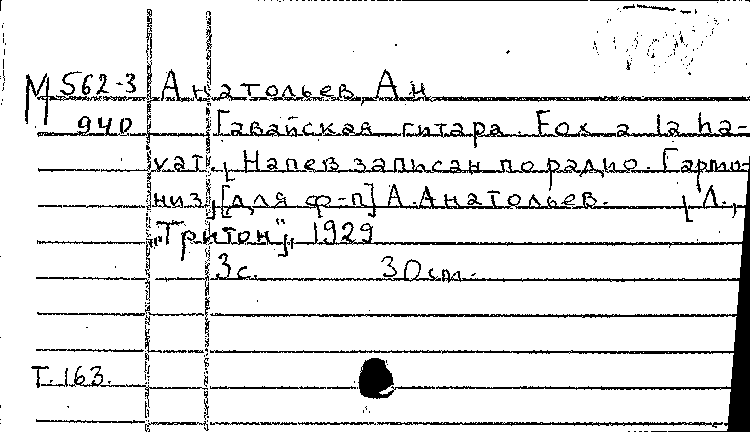 М 562-3 Анатольев, Ан
940 Гавайская гитара. Fox a la ha-
vat. [Напев записан по радио. Гармо-
низ. [для ф-п] А. Анатольев. [Л.,
„Тритон“], 1929
3 с. 30 см.
Т. 163.